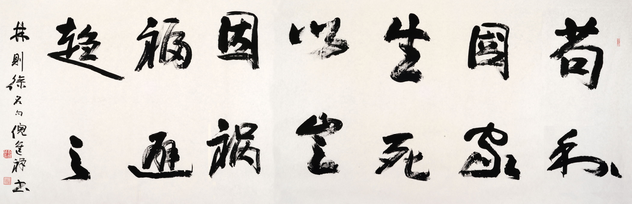 苟利
國家
生死
以豈
因禍
福避
趋之
林則徐句倪书